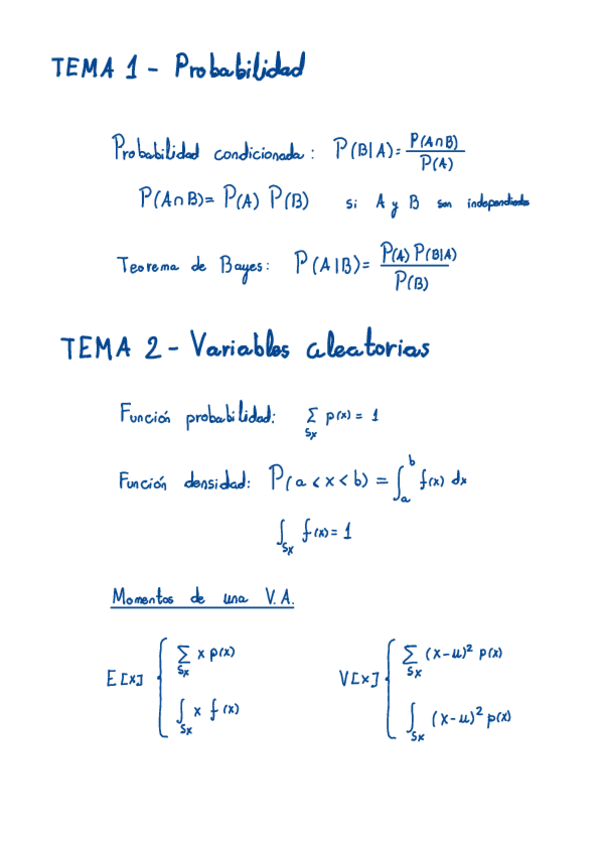 TEMA 1 - Probabilidad
Probabilidad condicionada: P(B|A) = P(A∩B) / P(A)
P(A∩B) = P(A) P(B) si A y B son independientes
Teorema de Bayes: P(A|B) = P(A) P(B|A) / P(B)
TEMA 2 - Variables aleatorias
Función probabilidad: Σ_Sx p(x) = 1
Función densidad: P(a < x < b) = ∫_a^b f(x) dx
∫_Sx f(x) = 1
Momentos de una V.A.
E[x] { Σ_Sx x p(x)
∫_Sx x f(x)
V[x] { Σ_Sx (x-u)² p(x)
∫_Sx (x-u)² p(x)